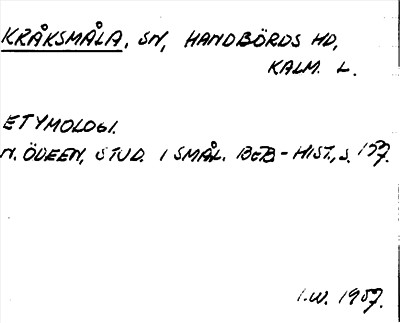 KRÅKSMÅLA, SN, HANDBÖRDS HD,
KALM. L.
ETYMOLOGI.
N. ÖDEEN, STUD. I SMÅL. BEB-HIST., S. 157.
I.W. 1957.